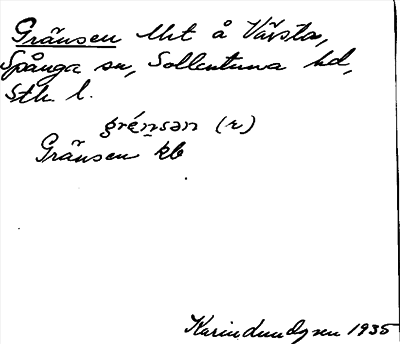 Gränsen lht å Vävsta,
Spånga sn, Sollentuna hd,
Sth. l.
grénsan (r)
Gränsen kb
Karin Lundgren 1935